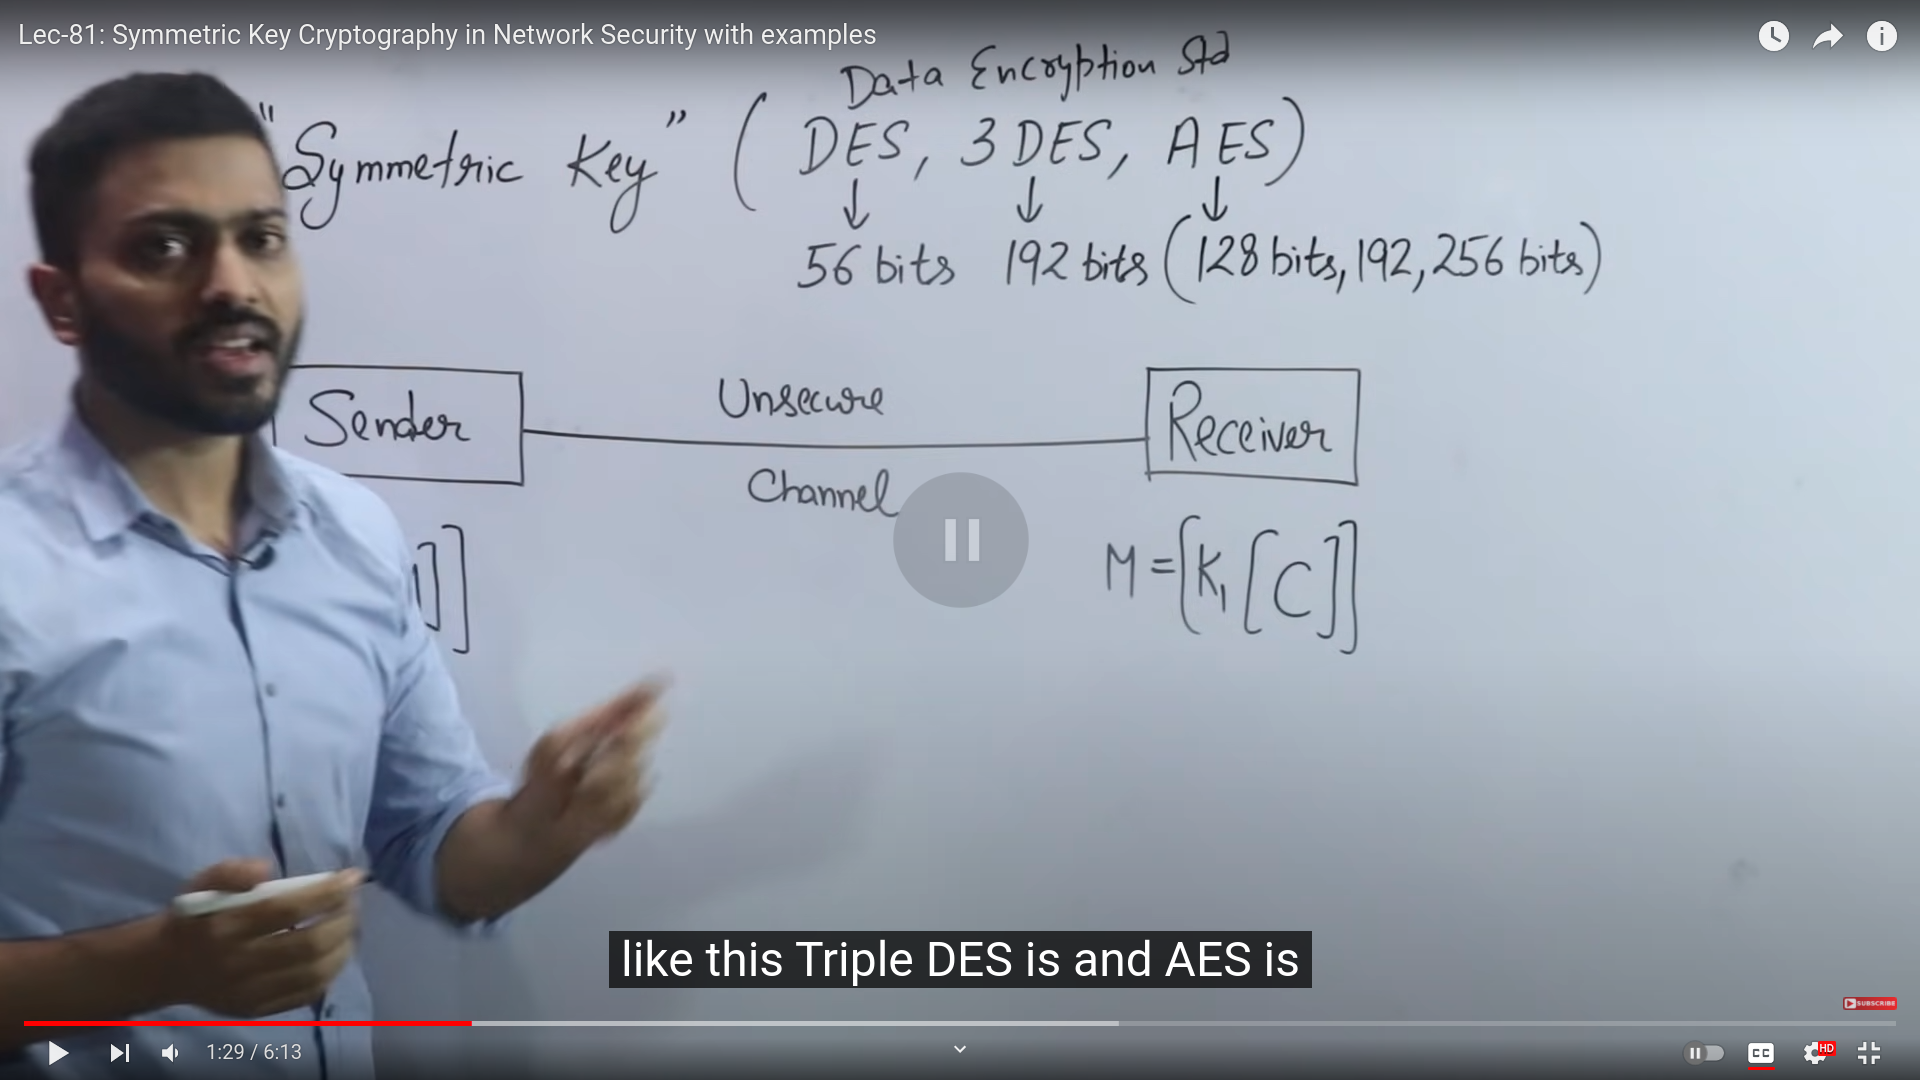 Lec-81: Symmetric Key Cryptography in Network Security with examples
Data Encryption Std
"Symmetric Key" ( DES, 3 DES, AES)
↓ ↓ ↓
56 bits 192 bits (128 bits, 192, 256 bits)
Sender
Unsecure
Channel
Receiver
]]
M = [K₁ [C]]
like this Triple DES is and AES is
SUBSCRIBE
1:29 / 6:13
CC
HD